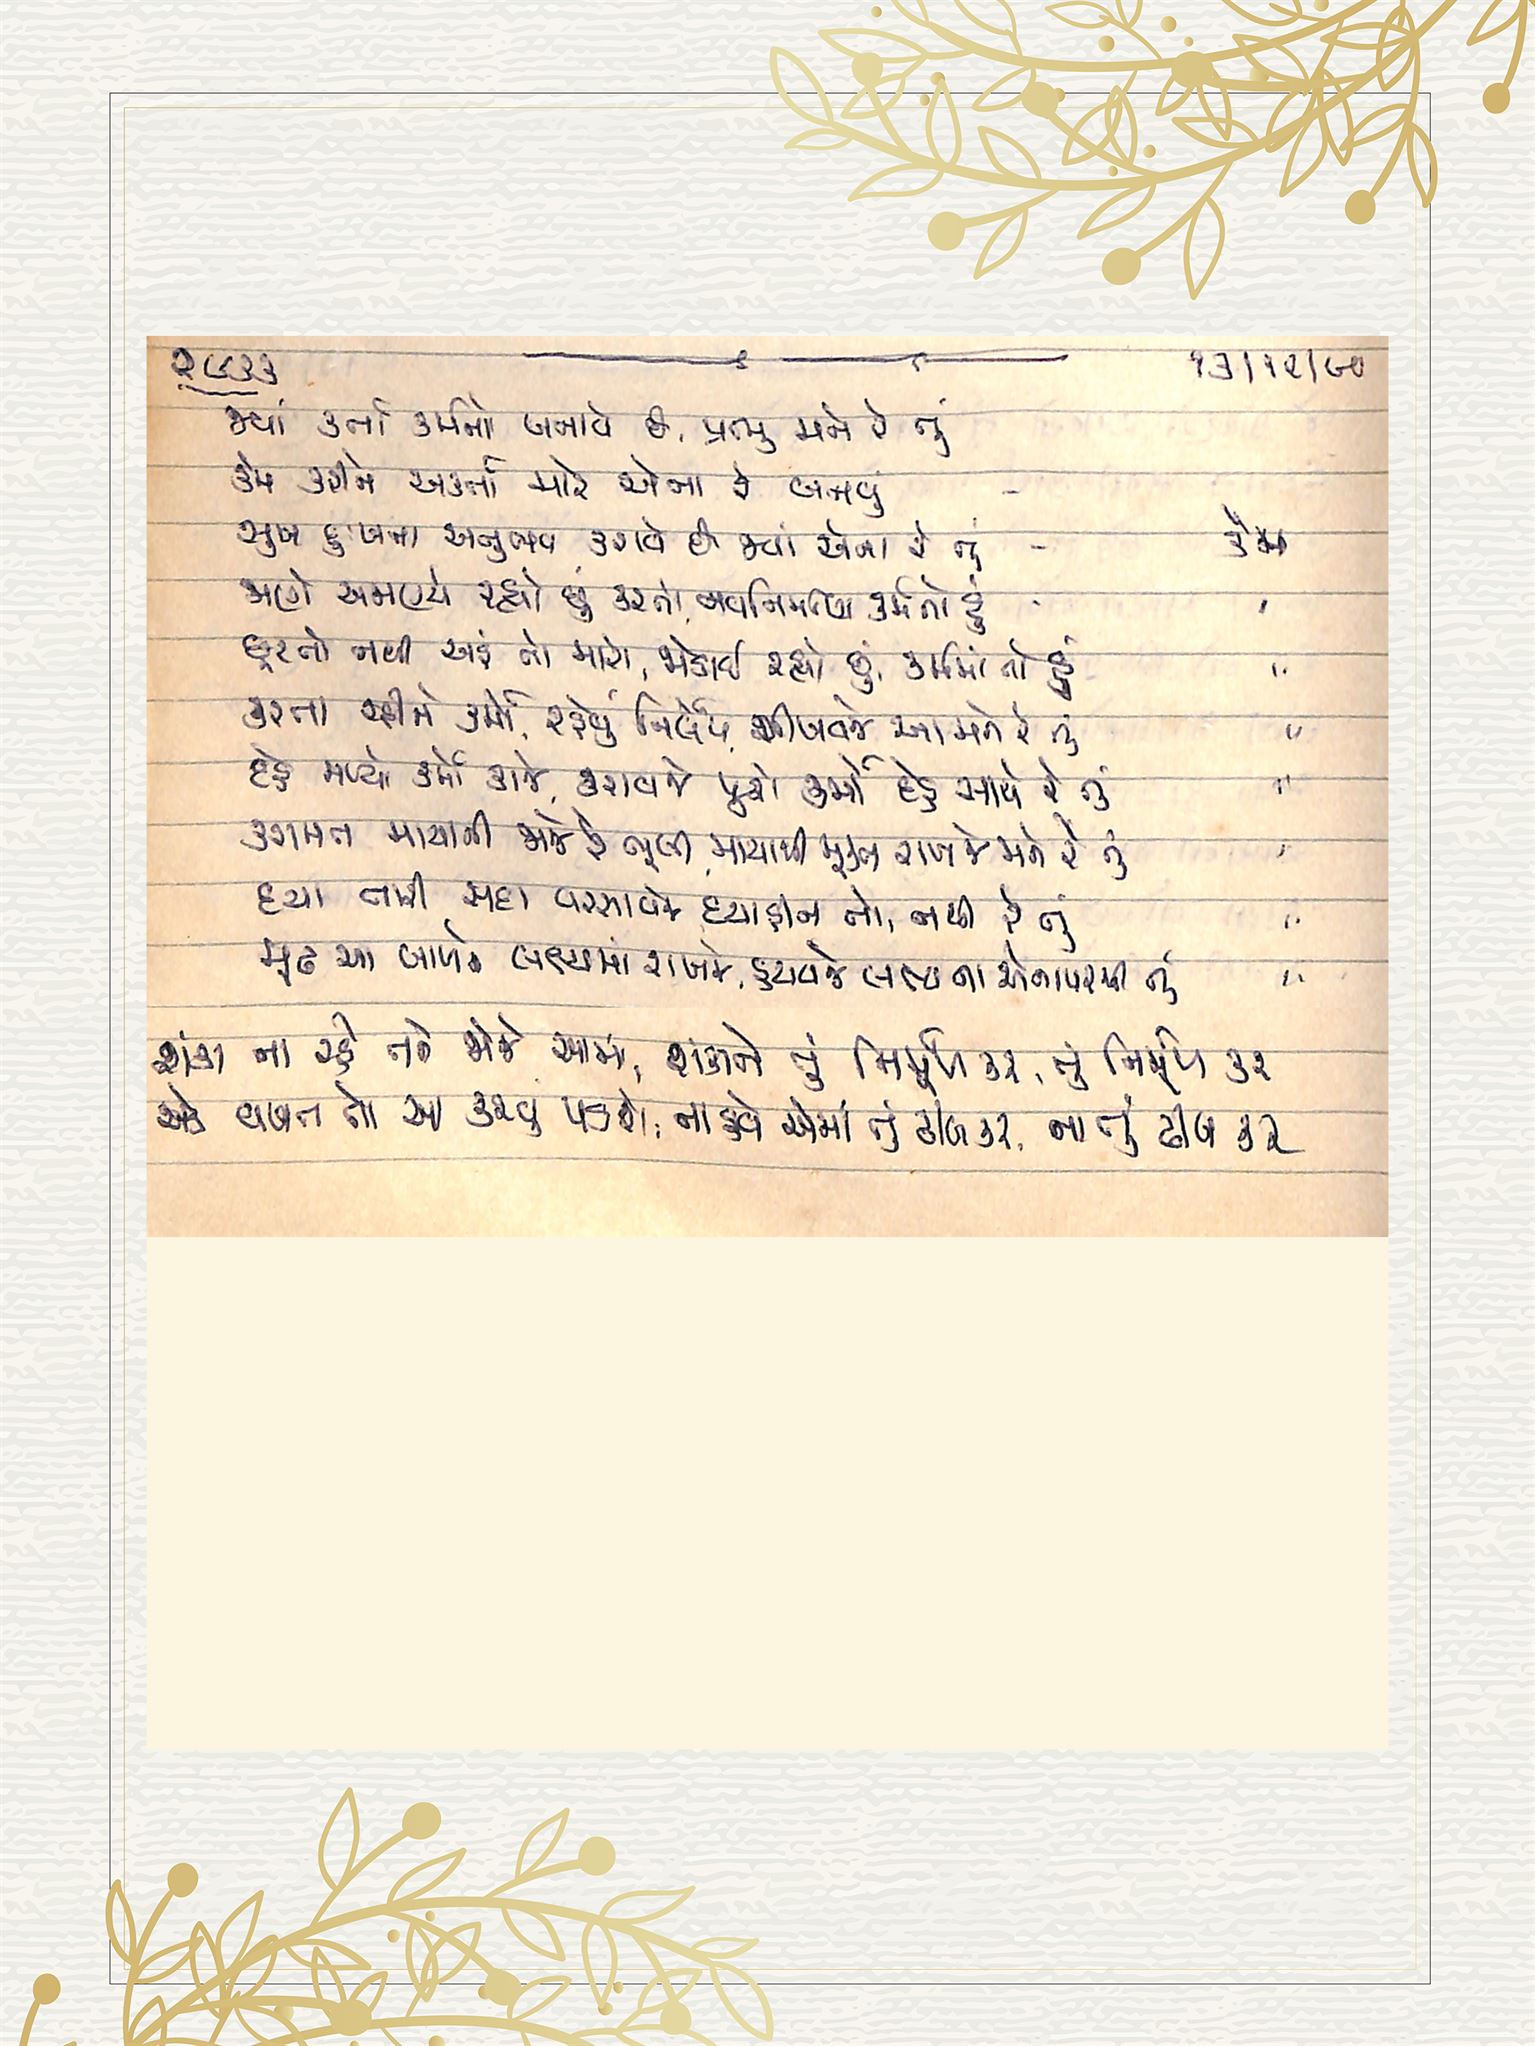 ૨૯૩૩ ૧૩/૧૨/૯૦
જ્યાં કર્તા કર્મનો બનાવે છે, પ્રભુ મને રે તું
કેમ કરીને અકર્તા મારે એના રે બનવું
સુખ દુઃખના અનુભવ કરાવે છે જ્યાં એના રે તું - કેમ
જાણે અજાણ્યે રહ્યો છું કરતો, નવનિર્માણ કર્મનો હું "
છૂટતો નથી અહં તો મારો, જોડાઈ રહ્યો છું, કર્મમાં તો હું "
કરતા રહીને કર્મો, રહેવું નિર્લેપ, શીખવજે આ મને રે તું "
દેહ મળ્યો કર્મો કાજે, કરાવજે પૂરો કર્મો દેહ સાથે રે તું "
કરામત માયાની જોજે રે ભૂલી, માયાથી મુક્ત રાખજે મને રે તું "
દયા તારી સદા વરસાવજે, દયાહીન તો, નથી રે તું "
મૂઢ આ બાળને લક્ષ્યમાં રાખજે, હટાવજે લક્ષ્ય ના એના પરથી તું "
શંકા ના રહે તને જોજે આમાં, શંકાને તું નિર્મૂળ કર, તું નિર્મૂળ કર
એક વખત તો આ કરવું પડશે, ના હવે એમાં તું ઢીલ કર, ના તું ઢીલ કર